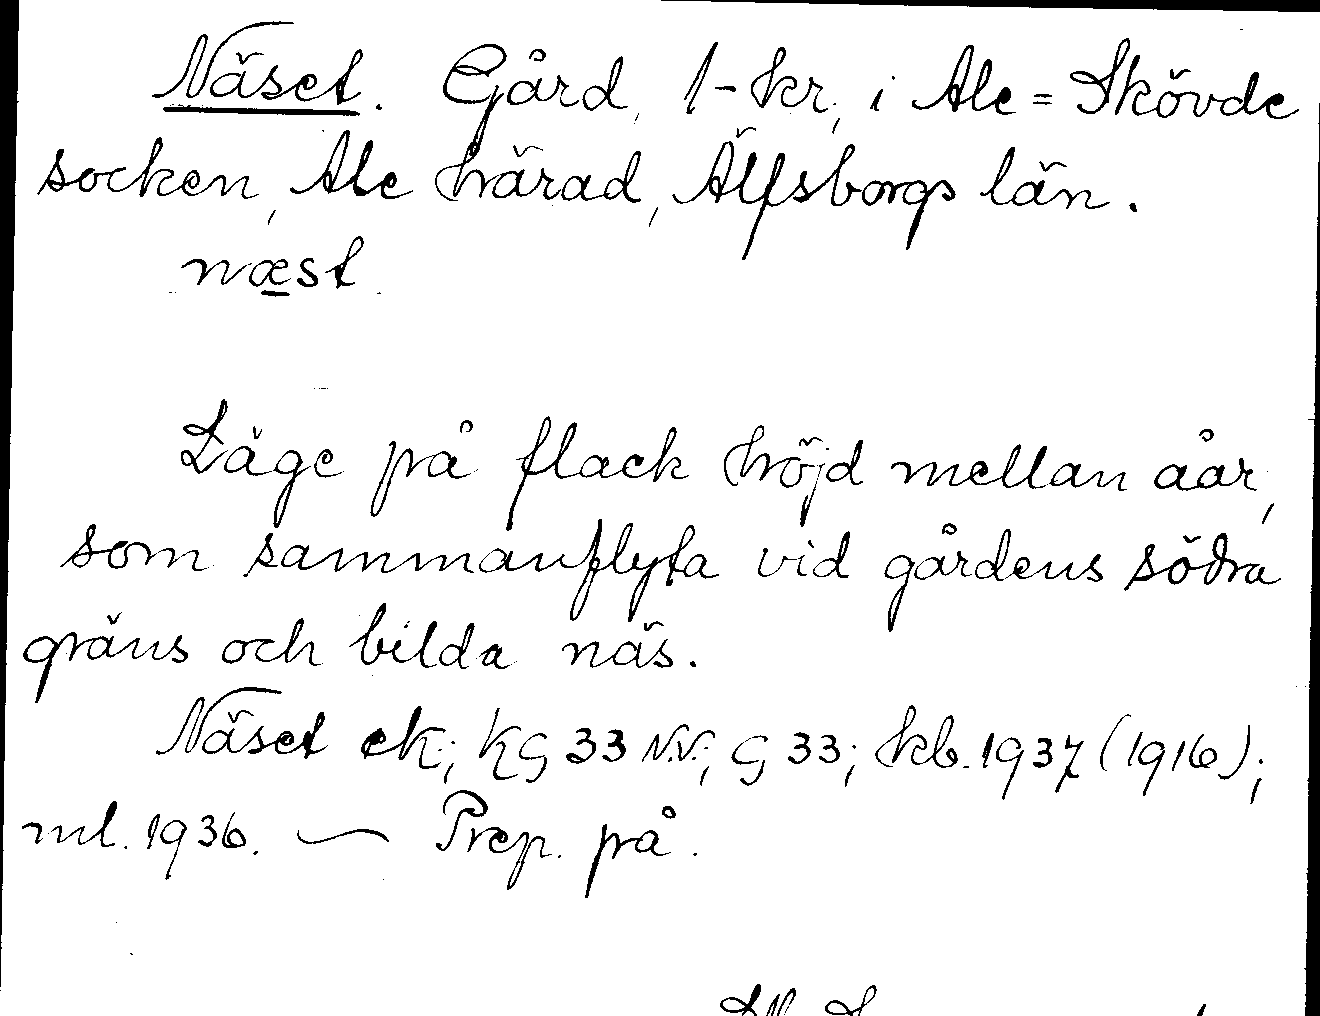 Näset. Gård, 1-kr., i Ale=Skövde
socken, Ale härad, Älfsborgs län.
næst
Läge på flack höjd mellan åar,
som sammanflyta vid gårdens södra
gräns och bilda näs.
Näset ek.; KG 33 N.V.; G 33; kb. 1937 (1916);
ml. 1936. — Prep. på.